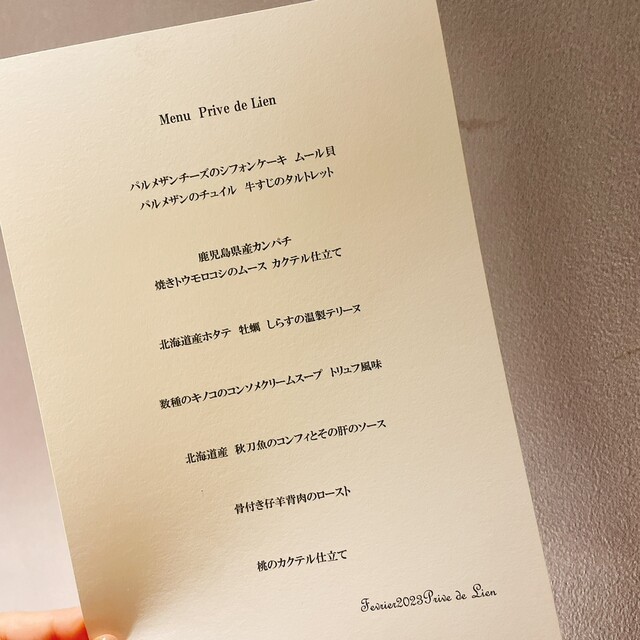 Menu Prive de Lien
パルメザンチーズのシフォンケーキ ムール貝
パルメザンのチュイル 牛すじのタルトレット
鹿児島県産カンパチ
焼きトウモロコシのムース カクテル仕立て
北海道産ホタテ 牡蠣 しらすの温製テリーヌ
数種のキノコのコンソメクリームスープ トリュフ風味
北海道産 秋刀魚のコンフィとその肝のソース
骨付き仔羊背肉のロースト
桃のカクテル仕立て
Fevrier2023Prive de Lien